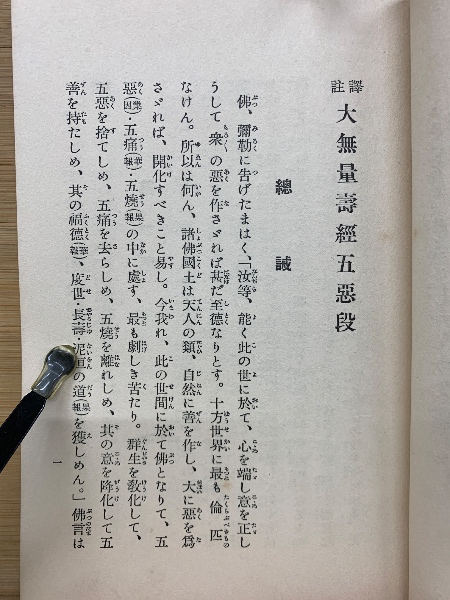 註譯 大無量壽經五惡段
總誡
佛、彌勒に告げたまはく、「汝等、能く此の世に於て、心を端し意を正し
うして衆の惡を作さゞれば甚だ至德なりとす。十方世界に最も倫匹
なけん。所以は何ん、諸佛國土は天人の類、自然に善を作し、大に惡を爲
さゞれば、開化すべきこと易し。今我れ、此の世間に於て佛となりて、五
惡(業因)・五痛(華報)・五燒(果報)の中に處す、最も劇しき苦たり。群生を敎化して、
五惡を捨てしめ、五痛を去らしめ、五燒を離れしめ、其の意を降化して五
善を持たしめ、其の福德(華報)、度世・長壽・泥洹の道(果報)を獲しめん。」佛言は
一